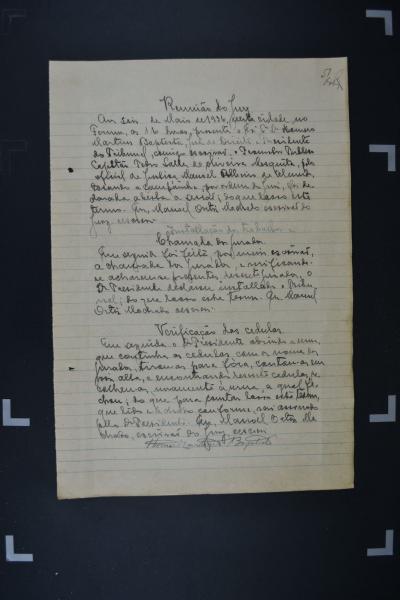 Reunião do Jury
Aos seis de Maio de 1936, nesta cidade, no
Forum, as 16 horas, presente o
Martins Baptista, Juiz de Direito e Presidente
do Tribunal, comigo escrivão, o Promotor Publico
Oliveira Mesquita, pelo
official de Justiça Manoel
tocando a campainha, por ordem do Juiz, foi de-
clarada aberta a sessão; do que lavro este
termo. Eu, Manoel Ortiz Machado escrivão do
Jury, escrevi
Installação do trabalho e
Chamada dos jurados
Em seguida foi feita por mim, escrivão,
a chamada dos jurados, e verificando-
se acharem-se presentes jurados, o
Dr Presidente declarou installado o Tribu-
nal; do que lavro este termo. Eu Manoel
Ortiz Machado escrevi.
Verificação das cedulas
Em seguida o Dr Presidente abrindo a urna,
que continha as cedulas com os nomes dos
jurados, tirou-as para fóra, contou-as em
voz alta, e encontrando cedulas, re-
colheu-as novamente á urna, a qual fe-
chou; do que para constar lavro este termo,
que lido e achado conforme, vai assignado
pelo Dr Presidente. Eu, Manoel Ortiz Ma-
chado, escrivão do Jury, escrevi
Martins Baptista